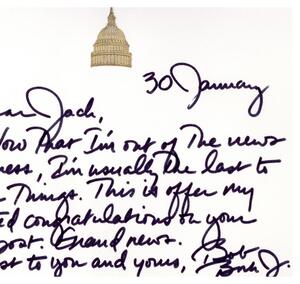 30 January
Jack,
That I'm out of The news
I'm usually the last to
Things. This is offer my
congratulations on your
Grand news.
to you and yours, Bob